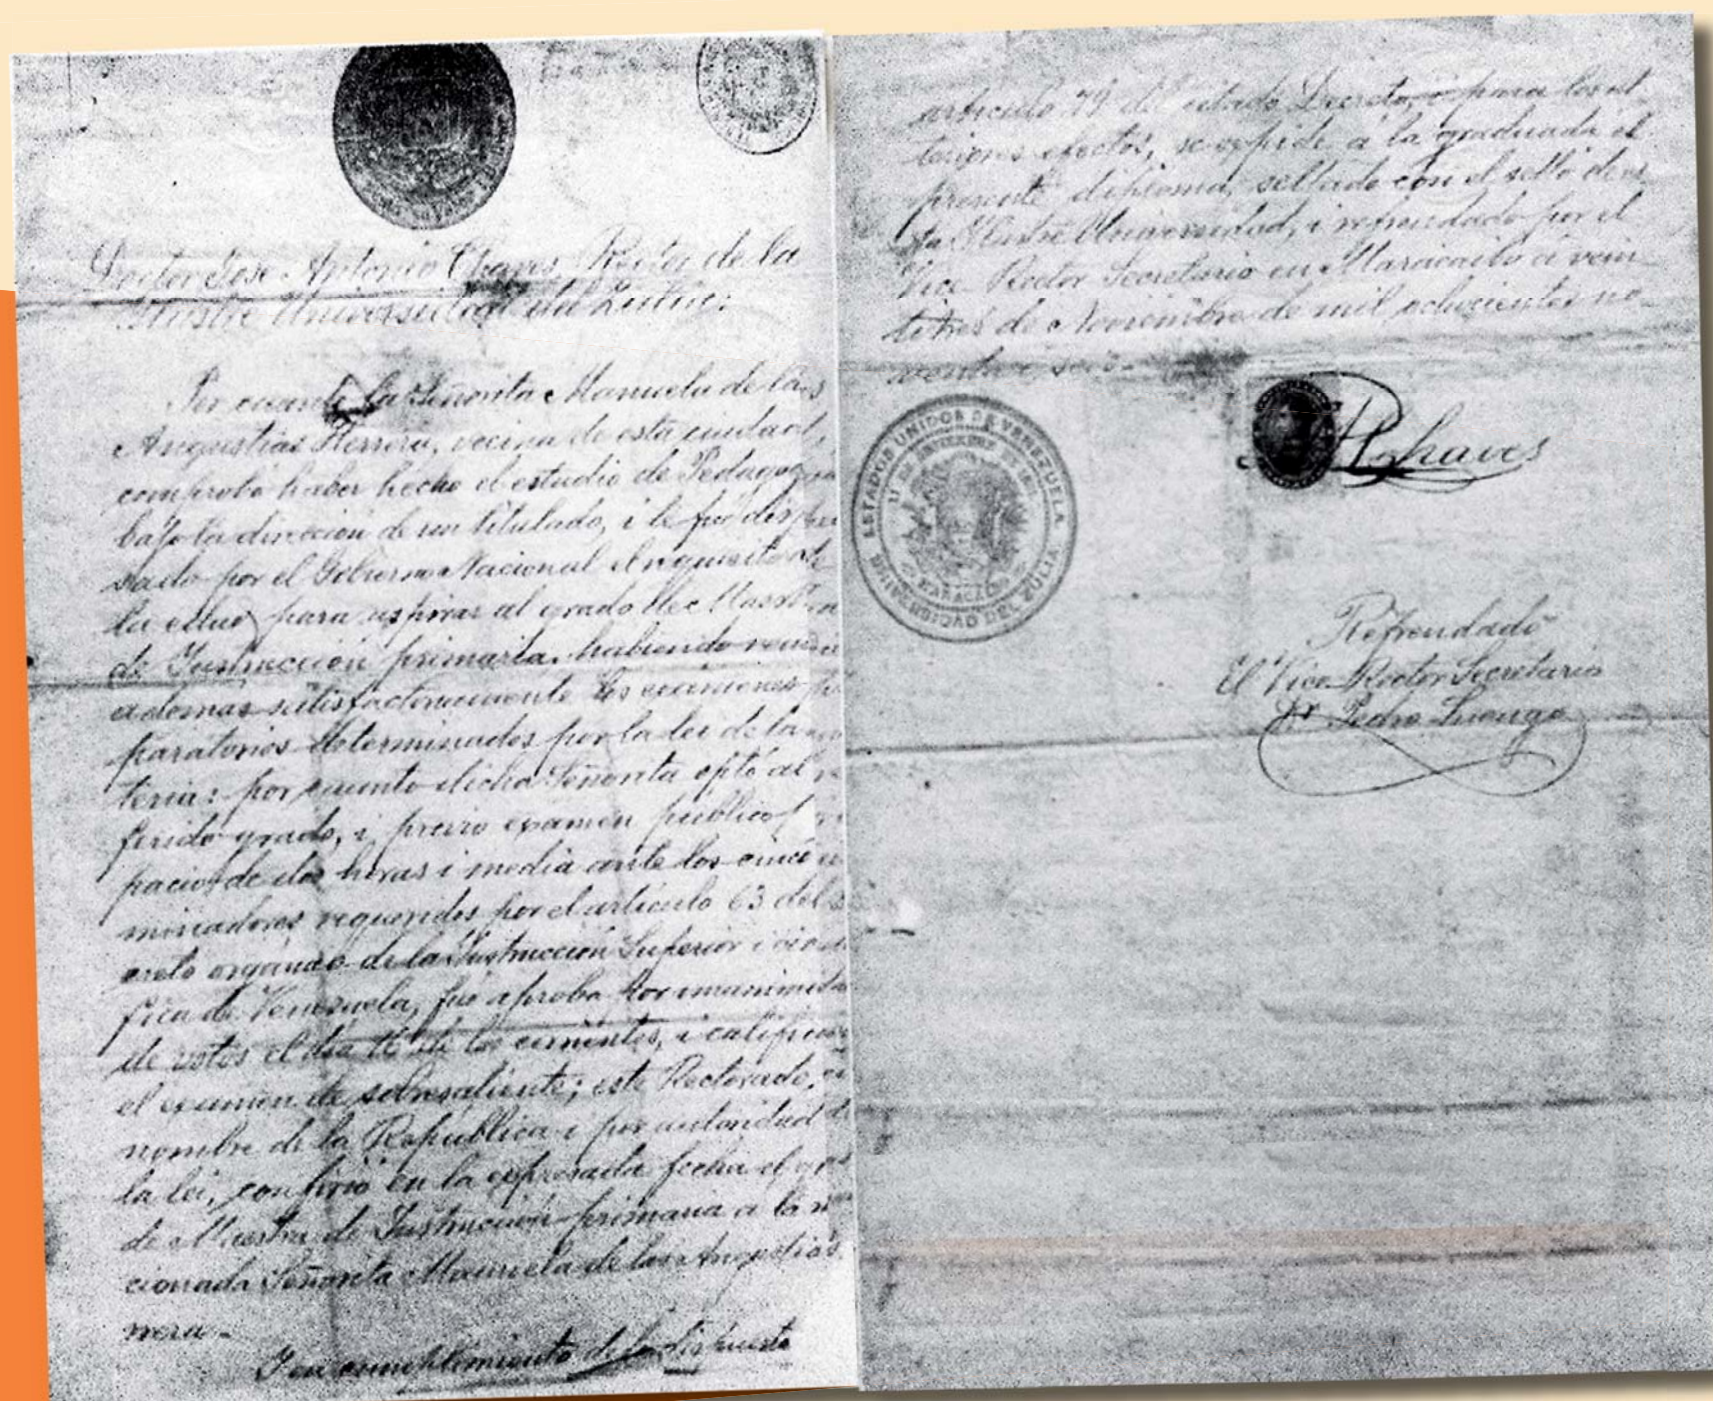 Doctor José Antonio Chaves, Rector de la
Ilustre Universidad del Zulia:
Por cuanto la Señorita Manuela de las
Angustias Herrera, vecina de esta ciudad,
comprobó haber hecho el estudio de Pedagogía
bajo la dirección de un titulado, i le fué dispen
sado por el Gobierno Nacional el requisito de
la edad para aspirar al grado de Maestra
de Instrucción primaria, habiendo
ademas satisfactoriamente los examenes pre
paratorios determinados por la lei de la ma
teria: por cuanto dicha Señorita optó al re
ferido grado, i previo examen público
pacio de dos horas i media ante los cinco exa
minadores requeridos por el artículo 63 del De
creto orgánico de la Instrucción Superior i cientí
fica de Venezuela, fue aproba por unanimidad
de votos el día de los corrientes, i calificado
el examen de sobresaliente; este Rectorado, en
nombre de la República i por autoridad de
la lei, confirió en la expresada fecha el grado
de Maestra de Instrucción primaria a la men
cionada Señorita Manuela de las Angustias
rrera.
I en cumplimiento de lo dispuesto
artículo 79 del citado Decreto, i para los ul
teriores efectos, se expide á la graduada el
presente diploma, sellado con el sello de es
ta Ilustre Universidad, i refrendado por el
Vice-Rector Secretario en Maracaibo á vein
titres de Noviembre de mil ochocientos no
venta i seis.
ESTADOS UNIDOS DE VENEZUELA
MARACAIBO
UNIVERSIDAD DEL ZULIA
Chaves
Refrendado
El Vice-Rector Secretario
Dr. Pedro Luengo